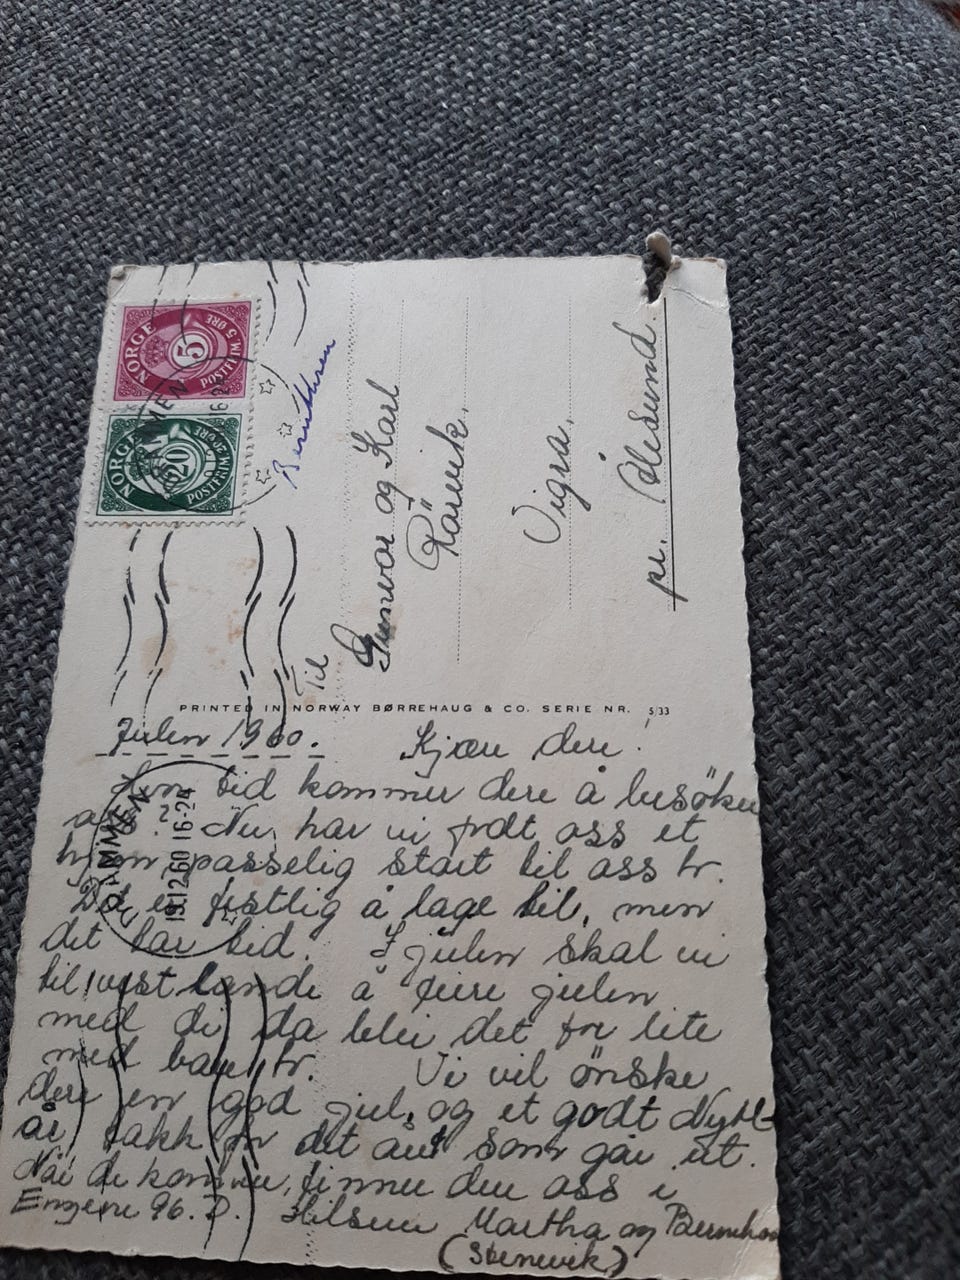 NORGE
5
POSTFRIM. 5 ØRE
NORGE
20
POSTFRIM. 20 ØRE
DRAMMEN
16-24
Til
Gunvor og Karl
Rörvik.
Vigra.
pr. Ålesund.
PRINTED IN NORWAY BØRREHAUG & CO. SERIE NR. 5/33
Julen 1960. Kjære dere!
tid kommer dere å besöke
Nu har vi fådt oss et
hjem passelig stort til oss to.
Det er festlig å lage til, men
det tar tid. I julen skal vi
til vestlande å feire julen
med di da blei det for lite
med bare to. Vi vil önske
dere en god jul, og et godt Nytt-
år, takk for det året som går ut.
Når de kommer, finner dere oss i
Engene 96. D. Hilsen Martha og
(Stenevik)
DRAMMEN
19.12.60 16-24